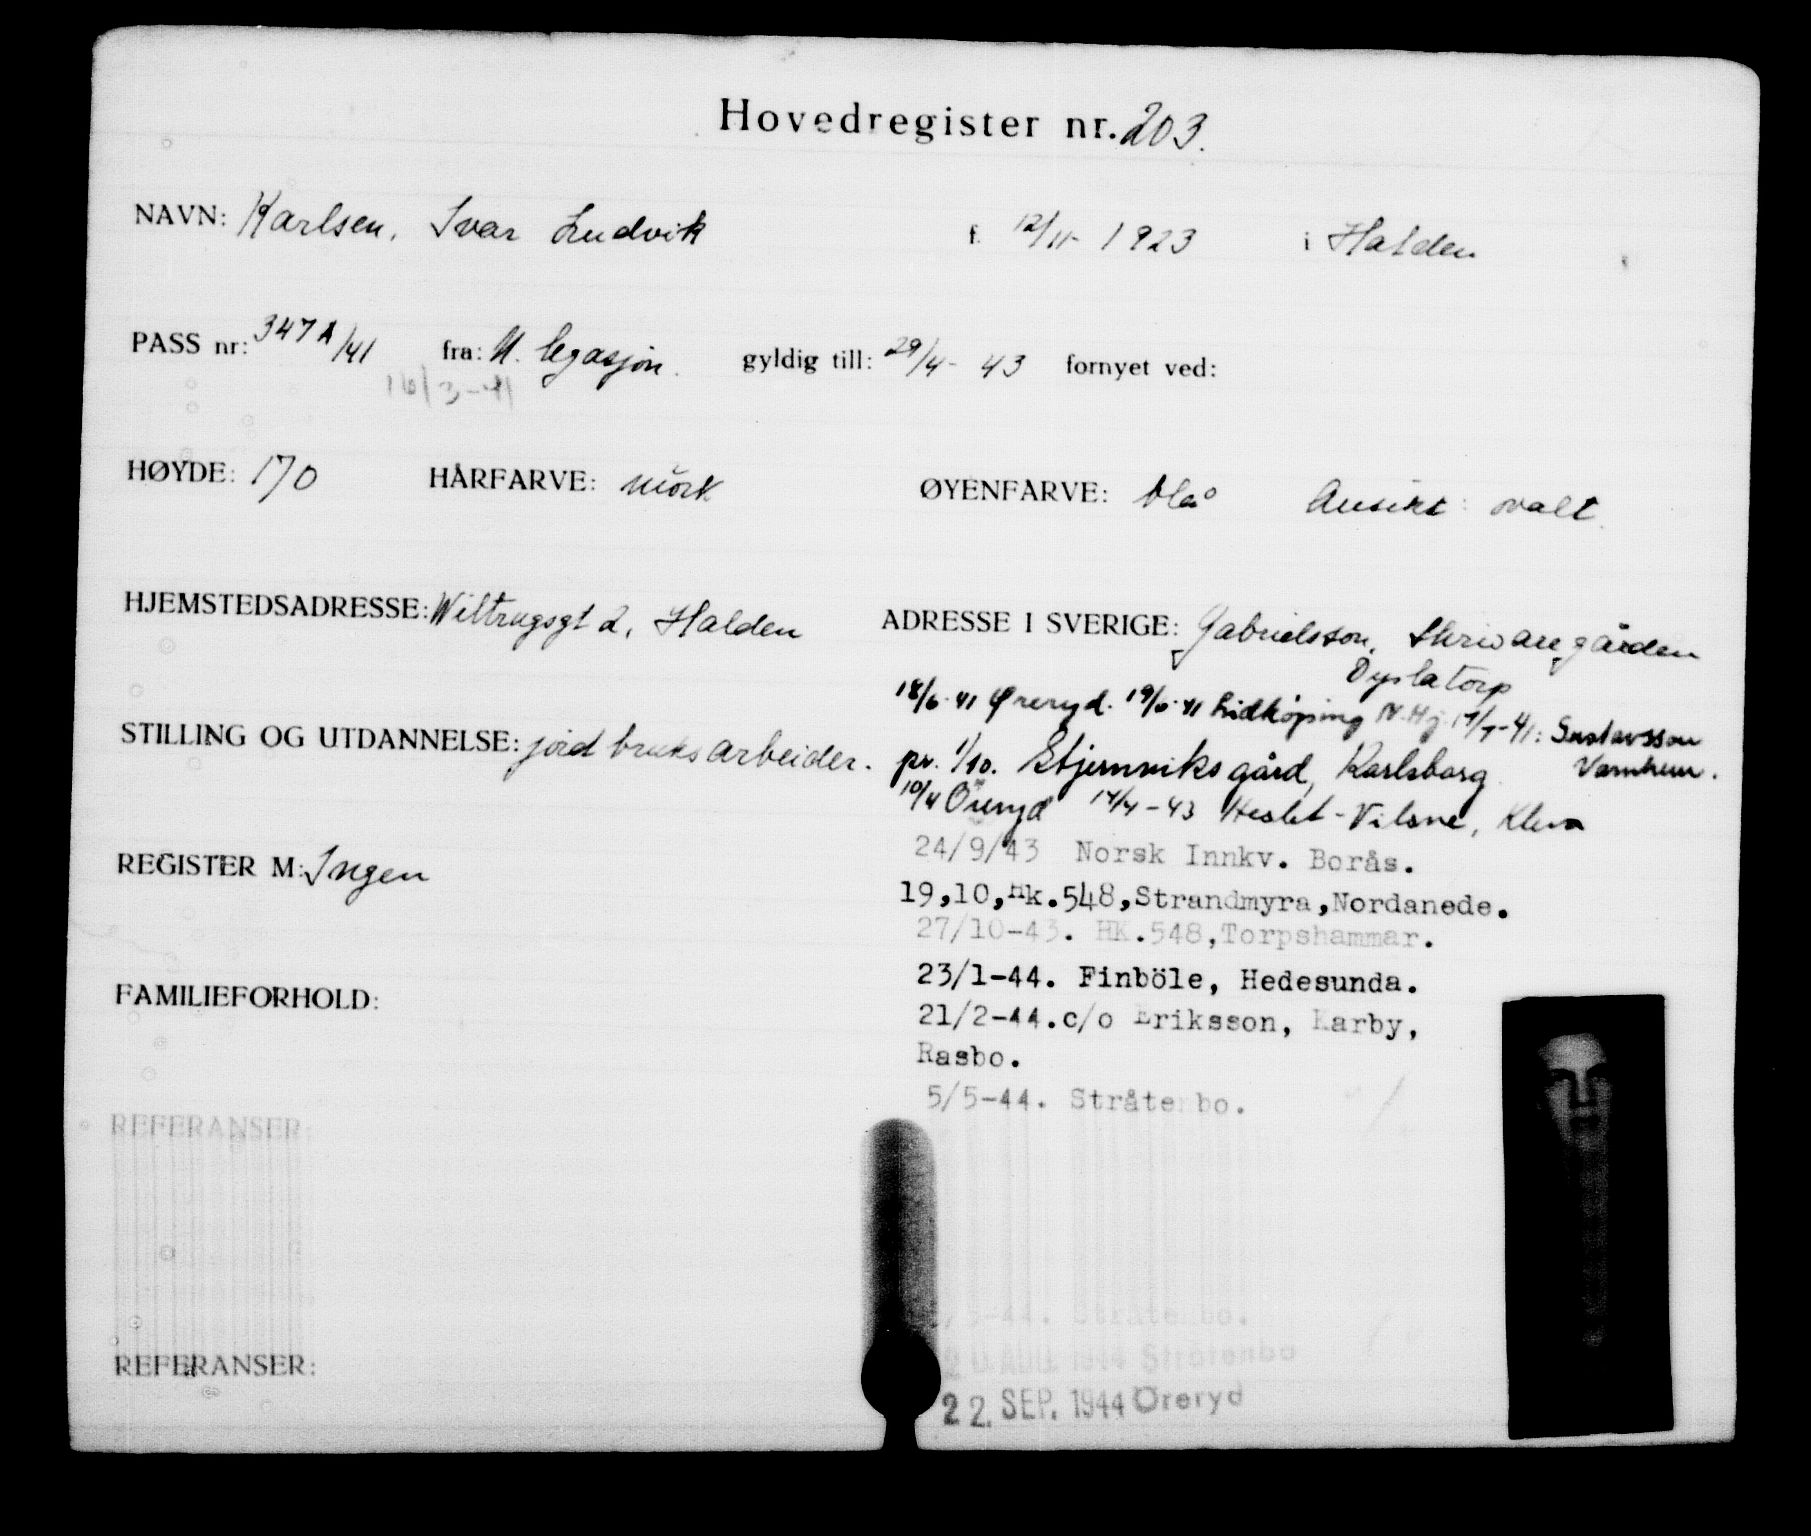 Hovedregister nr. 203.
NAVN: Karlsen, Ivar Ludvik f. 12/11- 1923 i Halden
PASS nr: 347 A/41 fra: N. legasjon. gyldig till: 29/4- 43 fornyet ved:
16/3-41
HØYDE: 170 HÅRFARVE: mörk ØYENFARVE: blå Ansikt: ovalt.
HJEMSTEDSADRESSE: Wiltrugsgt 2, Halden
ADRESSE I SVERIGE: Gabrielsson, Skrivaregården
Dyslatorp
18/6-41 Øreryd. 19/6-41 Lidköping N. Hj. 17/7-41: Gustavsson
Varnhem.
STILLING OG UTDANNELSE: jordbruksarbeider.
pr. 1/10. Stjernviks gård, Karlsborg
10/4 Öreryd 14/4-43 Heslet-Vilske, Kleva
24/9/43 Norsk Innkv. Borås.
REGISTER M: Ingen
19,10,Hk.548,Strandmyra,Nordanede.
27/10-43. HK.548,Torpshammar.
23/1-44. Finböle, Hedesunda.
FAMILIEFORHOLD:
21/2-44.c/o Eriksson, Karby,
Rasbo.
5/5-44. Stråtenbo.
REFERANSER:
5-44. Stråtenbo.
AUG. 1944 Stråtenbo
REFERANSER:
22. SEP. 1944 Öreryd